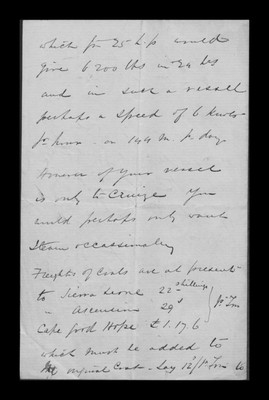 which for 25 h.p would
give 6200 lbs in 24 hrs
and in such a vessel
perhaps a Speed of 6 knots
pr hour or 144 m. pr day
However if your vessel
is only to Cruize you
would perhaps only want
Steam occasionally
Freights of Coals are at present
to Sierra Leone 22 shillings
" Ascension 29 s } pr Ton
Cape Good Hope £1.17.6
which must be added to
the original Cost - Say 12/ pr Ton to